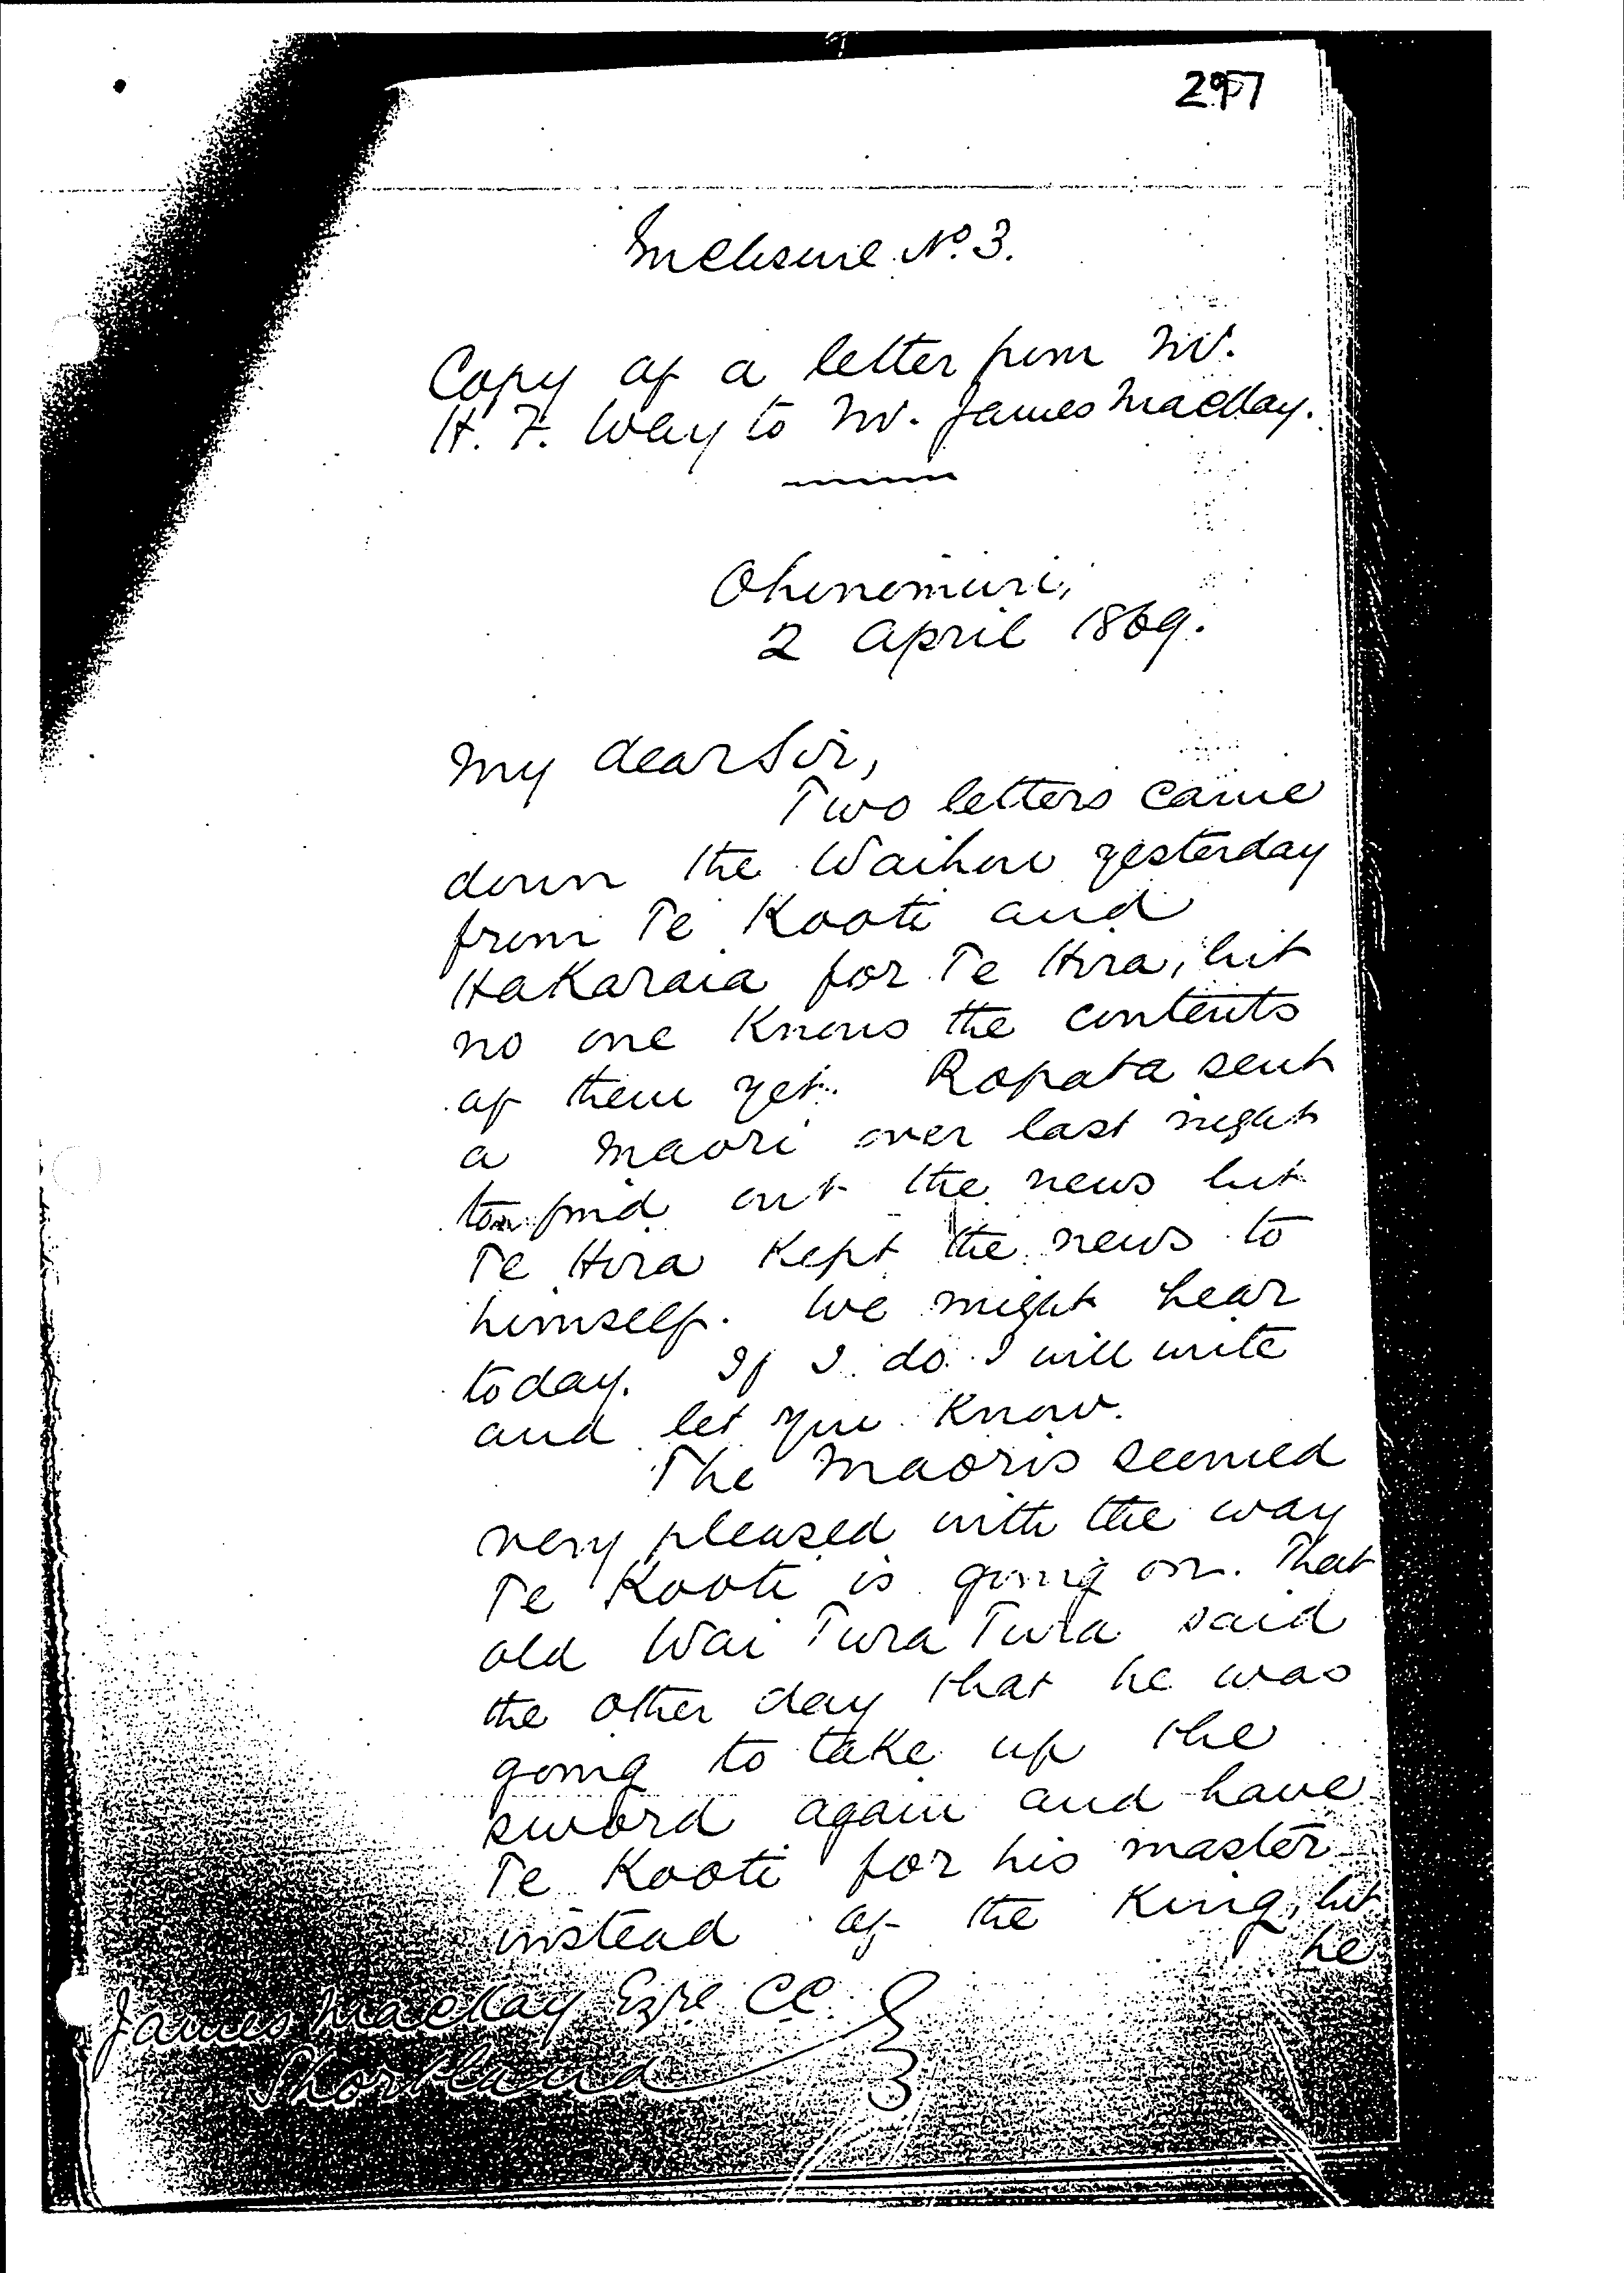 297
Inclosure No. 3.
Copy of a letter from Mr.
H. F. Way to Mr. James Mackay.
Ohinemuri,
2 April 1869.
My dear Sir,
Two letters came
down the Waihou yesterday
from Te Kooti and
Hakaraia for Te Hira, but
no one knows the contents
of them yet. Ropata sent
a Maori over last night
to find out the news but
Te Hira kept the news to
himself. We might hear
today. If I do I will write
and let you know.
The Maoris seemed
very pleased with the way
Te Kooti is going on. That
old Wai Tura Tura said
the other day that he was
going to take up the
sword again and have
Te Kooti for his master
instead of the King, but
he
James Mackay Esqre CC
Shortland